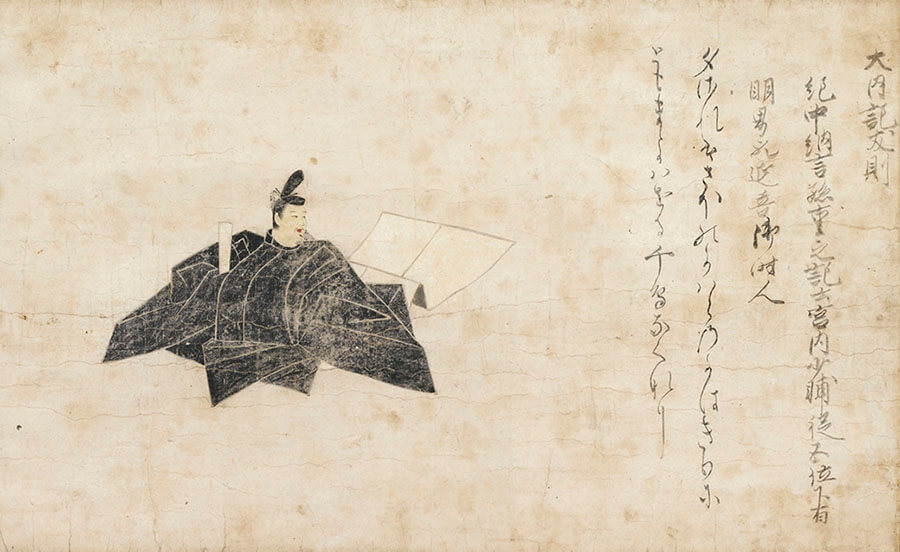 大内記友則
紀中納言 宮内少輔従五位下有
朋男 延喜御時人
夕されはさほのかはらのかはきりに
ともまとはせる千鳥なくなり